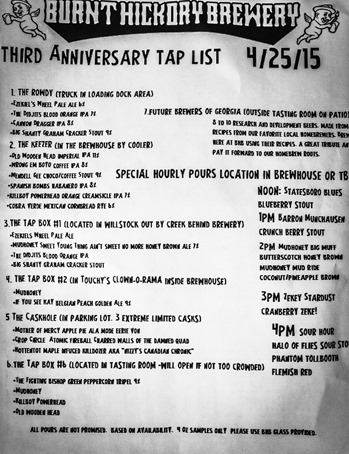 BURNT HICKORY BREWERY
THIRD ANNIVERSARY TAP LIST 4/25/15
1. THE ROWDY (TRUCK IN LOADING DOCK AREA)
•EZEKIEL'S WHEEL PALE ALE 6%
•THE DIDJITS BLOOD ORANGE IPA 7%
•CANNON DRAGGER IPA 8%
•BIG SHANTY GRAHAM CRACKER STOUT 9%
2. THE KEEZER (IN THE BREWHOUSE BY COOLER)
•OLD WOODEN HEAD IMPERIAL IPA 11%
•WRONG EM BOYO COFFEE IPA 8%
•MENDELL GEE CHOCO/COFFEE STOUT 9%
•SPANISH BOMBS HABANERO IPA 8%
•KILLBOY POWERHEAD ORANGE CREAMSICKLE IPA 7%
•COBRA VERDE MEXICAN CORNBREAD RYE 6%
3.THE TAP BOX #1 (LOCATED IN WILLSTOCK OUT BY CREEK BEHIND BREWERY)
•EZEKIELS WHEEL PALE ALE
•MUDHONEY SWEET YOUNG THING AIN'T SWEET NO MORE HONEY BROWN ALE 7%
•THE DIDJITS BLOOD ORANGE IPA
•BIG SHANTY GRAHAM CRACKER STOUT
4. THE TAP BOX #2 (IN TOUCHY'S CLOWN-O-RAMA INSIDE BREWHOUSE)
•MUDHONEY
•IF YOU SEE KAY BELGIAN PEACH GOLDEN ALE 9%
5 THE CASKHOLE (IN PARKING LOT. 3 EXTREME LIMITED CASKS)
•MOTHER OF MERCY APPLE PIE ALA MODE EERIE VON
•CROP CIRCLE ATOMIC FIREBALL CHARRED WALLS OF THE DAMNED QUAD
•HOTTENTOT MAPLE INFUSED KILLDOZER AKA "NIZZY'S CANADIAN CHRONIC"
6.THE TAP BOX #6 (LOCATED IN TASTING ROOM -WILL OPEN IF NOT TOO CROWDED)
•THE FIGHTING BISHOP GREEN PEPPERCORN TRIPEL 9%
•MUDHONEY
•KILLBOY POWERHEAD
•OLD WOODEN HEAD
7.FUTURE BREWERS OF GEORGIA (OUTSIDE TASTING ROOM ON PATIO)
8 TO 10 RESEARCH AND DEVELOPMENT BEERS. MADE FROM
RECIPES FROM OUR FAVORITE LOCAL HOMEBREWERS.
HERE AT BHB USING THEIR RECIPES. A GREAT TRIBUTE AN
PAY IT FORWARD TO OUR HOMEBREW ROOTS.
SPECIAL HOURLY POURS LOCATION IN BREWHOUSE OR TB
NOON: STATESBORO BLUES
BLUEBERRY STOUT
1PM BARRON MUNCHAUSEN
CRUNCH BERRY STOUT
2PM MUDHONEY BIG MUFF
BUTTERSCOTCH HONEY BROWN
MUDHONEY MUD RIDE
COCONUT/PINEAPPLE BROWN
3PM ZEKEY STARDUST
CRANBERRY ZEKE!
4PM SOUR HOUR
HALO OF FLIES SOUR STO
PHANTOM TOLLBOOTH
FLEMISH RED
ALL POURS ARE NOT PROMISED. BASED ON AVAILABILITY. 4 OZ SAMPLES ONLY PLEASE USE BHB GLASS PROVIDED.